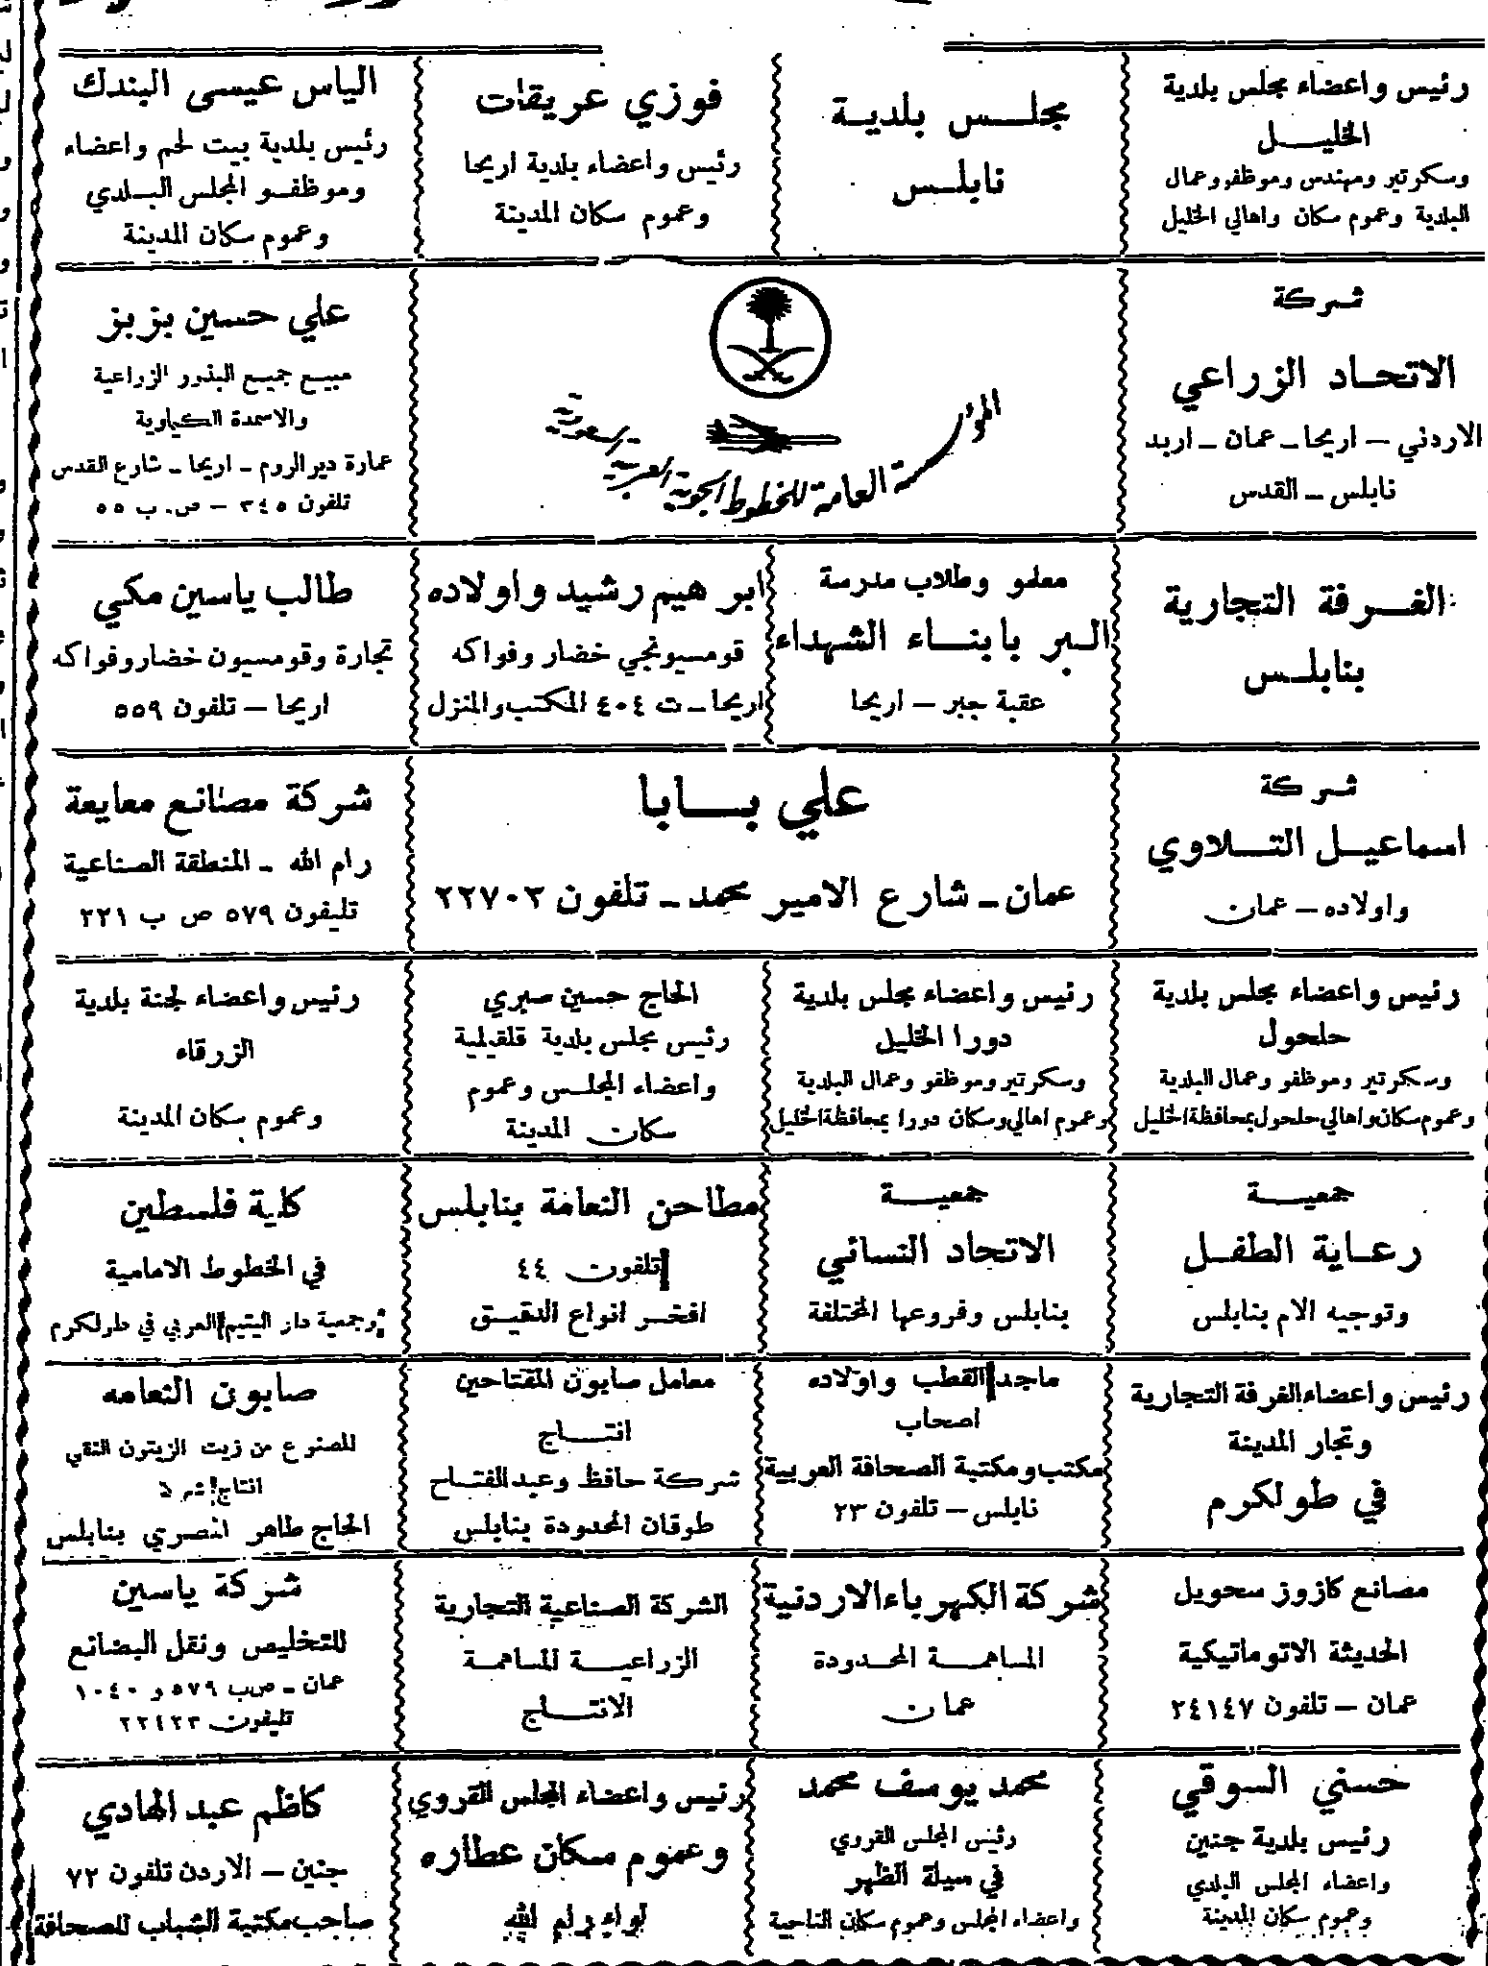 رئيس واعضاء مجلس بلدية
الخليـــل
وسكرتير ومهندس وموظفو وعمال
البلدية وعموم سكان واهالي الخليل
مجلـــس بلديـة
نابلـس
فوزي عريقات
رئيس واعضاء بلدية اريحا
وعموم سكان المدينة
الياس عيسى البندك
رئيس بلدية بيت لحم واعضاء
وموظفـو المجلس البـلدي
وعموم سكان المدينة
شـركة
الاتحـاد الزراعي
الاردني – اريحا – عمان – اربد
نابلس – القدس
المؤسسة العامة للخطوط الجوية العربية السعودية
علي حسين بزبز
مبيـع جميـع البذور الزراعية
والاسمدة الكيماوية
عمارة دير الروم – اريحا – شارع القدس
تلفون ٣٤٥ – ص. ب ٥٥
الغـــرفة التجارية
بنابلــس
معلمو وطلاب مدرسة
الـبر بابنـــاء الشهداء
عقبة جبر – اريحا
ابرهيم رشيد واولاده
قومسيونجي خضار وفواكه
اريحا – ت ٤٠٤ المكتب والمنزل
طالب ياسين مكي
تجارة وقومسيون خضار وفواكه
اريحا – تلفون ٥٥٩
شـركة
اسماعيــل التـــلاوي
واولاده – عمان
علي بـــابا
عمان – شارع الامير محمد – تلفون ٢٢٧٠٣
شركة مصانع معايعة
رام الله – المنطقة الصناعية
تليفون ٥٧٩ ص ب ٢٢١
رئيس واعضاء مجلس بلدية
حلحول
وسكرتير وموظفو وعمال البلدية
وعموم سكان واهالي حلحول بمحافظة الخليل
رئيس واعضاء مجلس بلدية
دورا الخليل
وسكرتير وموظفو وعمال البلدية
وعموم اهالي وسكان دورا بمحافظة الخليل
الحاج حسين صبري
رئيس مجلس بلدية قلقيلية
واعضاء المجلــس وعموم
سكان المدينة
رئيس واعضاء لجنة بلدية
الزرقاء
وعموم سكان المدينة
جمعيـــة
رعـاية الطفـل
وتوجيه الام بنابلس
جمعيـــة
الاتحاد النسائي
بنابلس وفروعها المختلفة
مطاحن النعامة بنابلس
تلفون ٤٤
افخـر انواع الدقيـق
كلية فلسطين
في الخطوط الامامية
وجمعية دار اليتيم العربي في طولكرم
رئيس واعضاء الغرفة التجارية
وتجار المدينة
في طولكرم
ماجد القطب واولاده
اصحاب
مكتب ومكتبة الصحافة العربية
نابلس – تلفون ٢٣
معامل صابون المفتاحين
انتــــاج
شركة حافظ وعبد الفتـاح
طوقان المحدودة بنابلس
صابون النعامه
المصنوع من زيت الزيتون النقي
انتاج
الحاج طاهر المصري بنابلس
مصانع كازوز سحويل
الحديثة الاتوماتيكية
عمان – تلفون ٢٤١٤٧
شركة الكهرباء الاردنية
المساهمـــة المحـدودة
عمان
الشركة الصناعية التجارية
الزراعيـــة المساهمـة
الانتــــاج
شركة ياسين
للتخليص ونقل البضائع
عمان – ص ب ٥٧٩ و ١٠٤٠
تليفون ٢٢٤٢٣
حسني السوقي
رئيس بلدية جنين
واعضاء المجلس البلدي
وعموم سكان المدينة
محمد يوسف محمد
رئيس المجلس القروي
في سيلة الظهر
واعضاء المجلس وعموم سكان الناحية
رئيس واعضاء المجلس القروي
وعموم سكان عطاره
لواء رام الله
كاظم عبد الهادي
جنين – الاردن تلفون ٧٢
صاحب مكتبة الشباب للصحافة